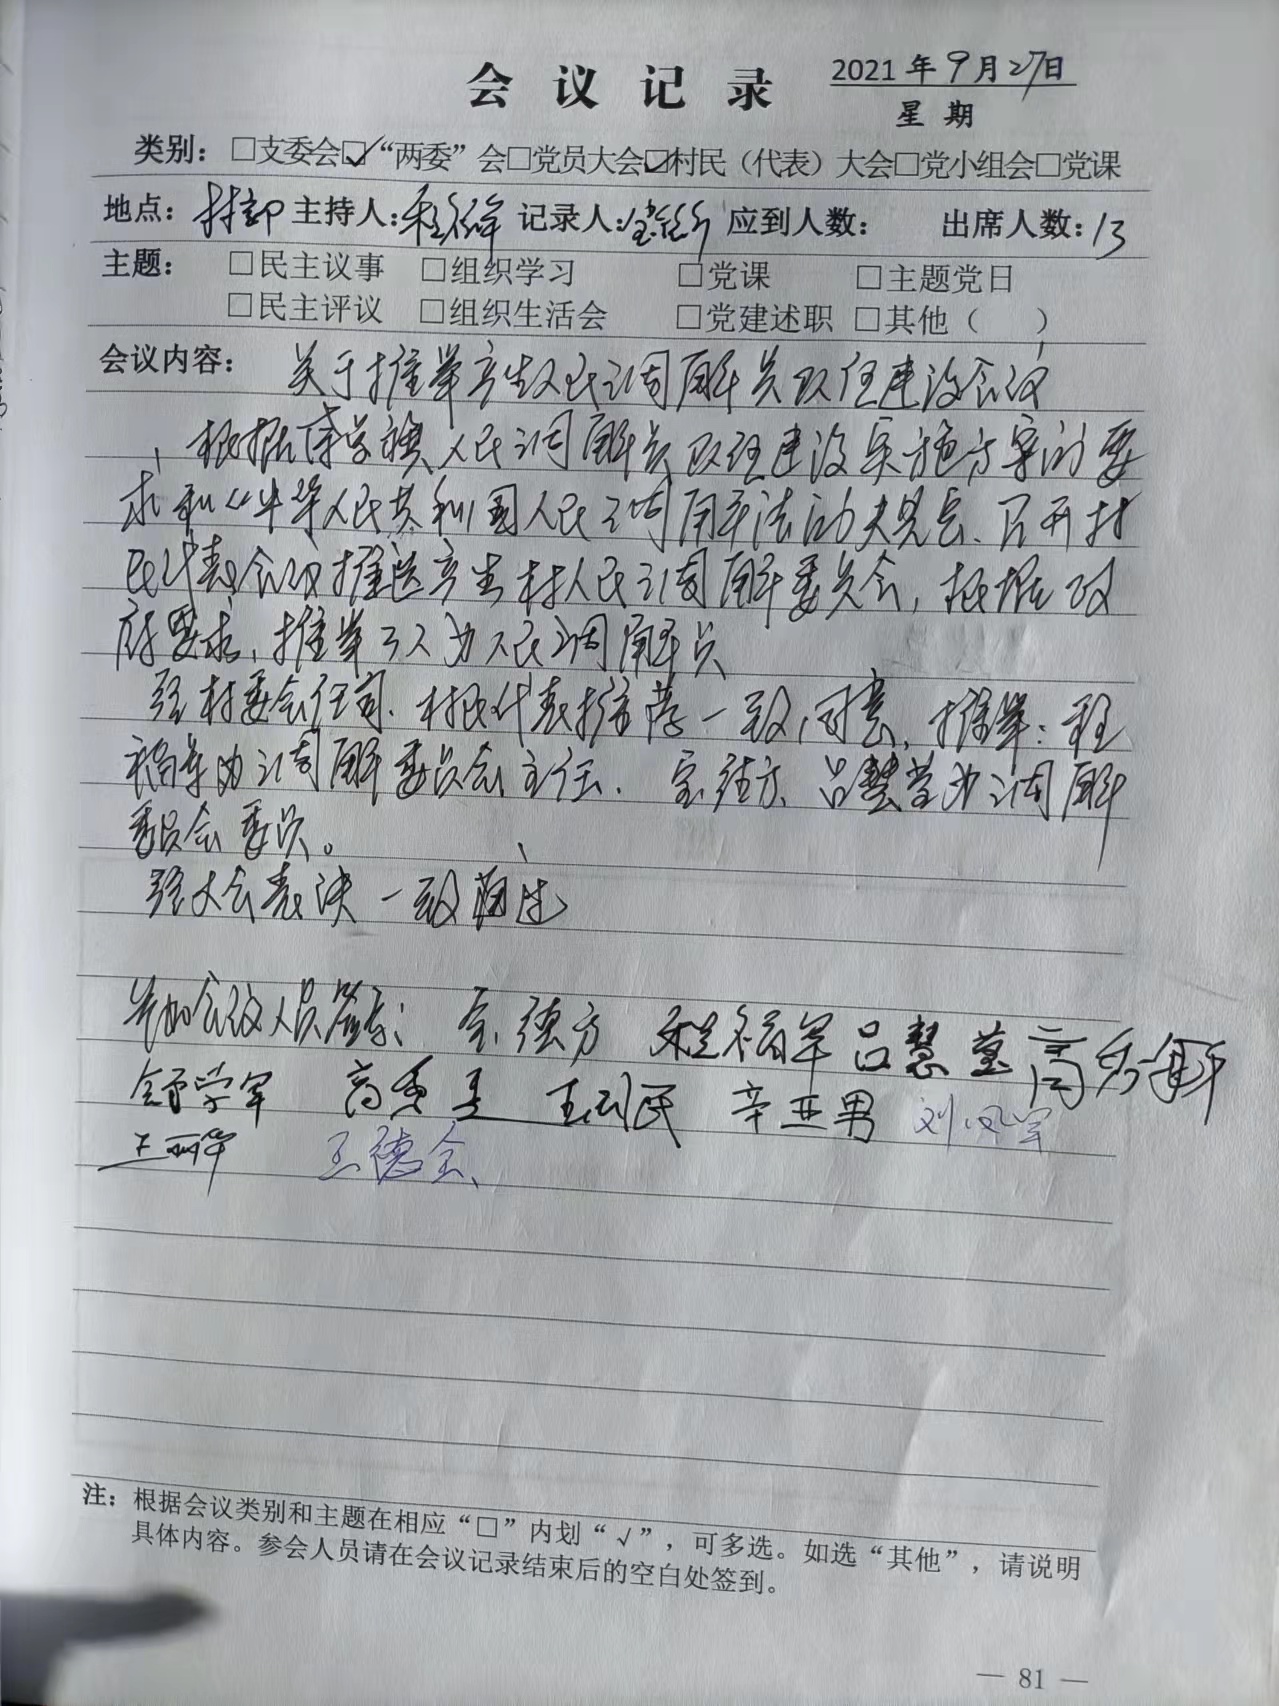 会议记录
2021年9月27日
星期
类别：□支委会☑“两委”会□党员大会☑村民（代表）大会□党小组会□党课
地点：村部 主持人：程福军 记录人： 应到人数： 出席人数：13
主题： □民主议事 □组织学习 □党课 □主题党日
□民主评议 □组织生活会 □党建述职 □其他（ ）
会议内容： 关于推举产生人民调解员队伍建设会议
根据 镇人民调解员队伍建设实施方案的要
求和《中华人民共和国人民调解法的 召开村
民代表会议推选产生村人民调解委员会，根据政
府要求，推举3人为人民调解员
经村委会 村民代表推荐一致同意，推举：程
福军为调解委员会主任、 德方、吕慧莹为调解
委员会委员。
经大会表决一致通过
参加会议人员签字： 德方 程福军 吕慧莹 高秀
学军 高秀 王 民 辛亚男 刘凤军
王丽华 王德全
注：根据会议类别和主题在相应“□”内划“√”，可多选。如选“其他”，请说明
具体内容。参会人员请在会议记录结束后的空白处签到。
— 81 —